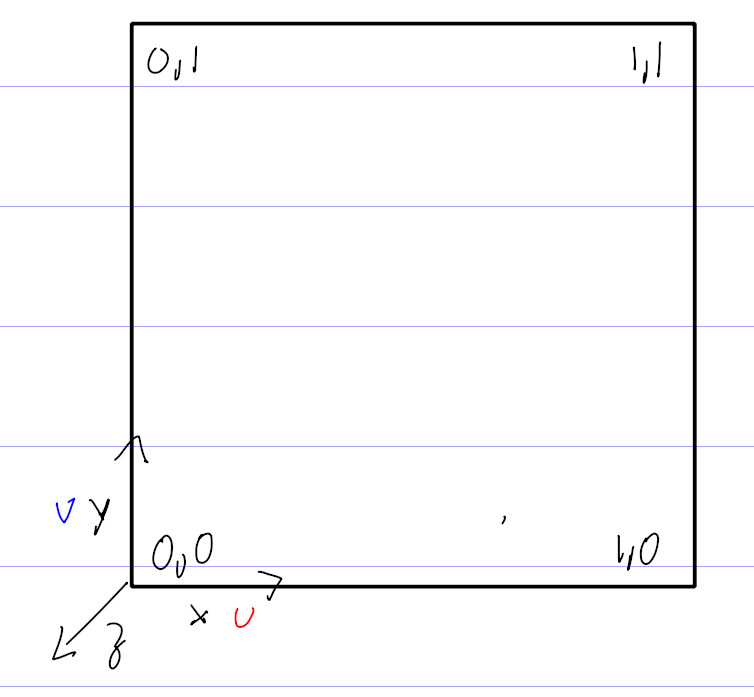 0,1 1,1
v y
0,0 1,0
x u
z